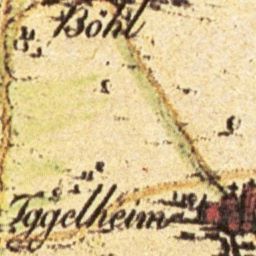 Böhl
Iggelheim